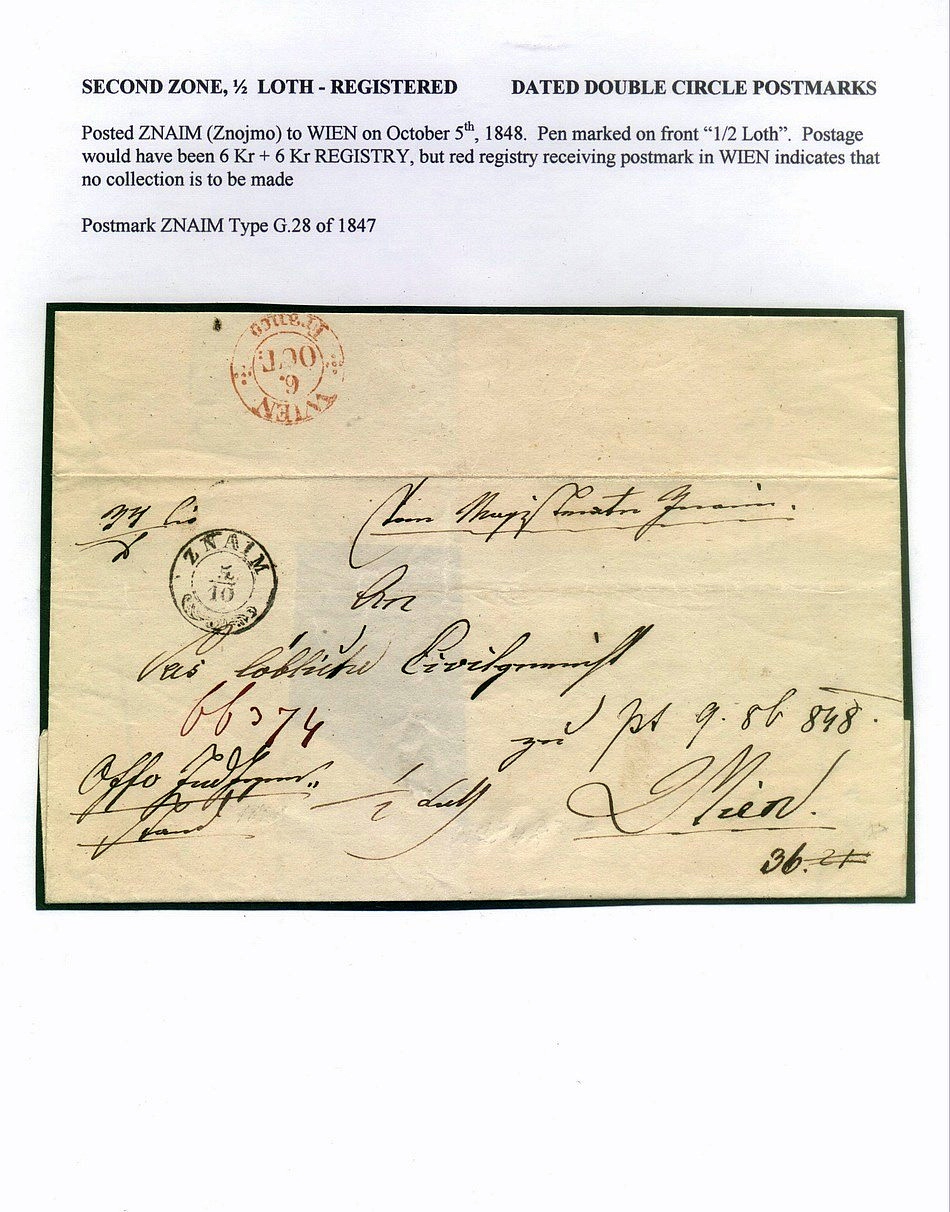 SECOND ZONE, ½ LOTH - REGISTERED DATED DOUBLE CIRCLE POSTMARKS
Posted ZNAIM (Znojmo) to WIEN on October 5th, 1848. Pen marked on front “1/2 Loth”. Postage
would have been 6 Kr + 6 Kr REGISTRY, but red registry receiving postmark in WIEN indicates that
no collection is to be made
Postmark ZNAIM Type G.28 of 1847
WIEN
6.
OCT.
Franco
Vom Magistrate Znaim.
ZNAIM
5
10
An
Das löbliche Civilgericht
zu
1/2 Loth
Wien.
36. 21